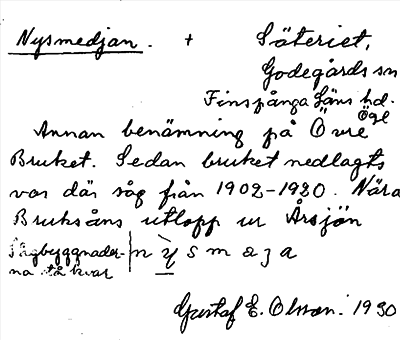 Nysmedjan. + Säteriet,
Godegårds sn
Finspånga Läns hd.
Ögl
Annan benämning på Övre
Bruket. Sedan bruket nedlagts
var där såg från 1902-1920. Nära
Bruksåns utlopp ur Årsjön
Sågbyggnader-
na stå kvar
n y s m
Gustaf E. Olsson. 1930